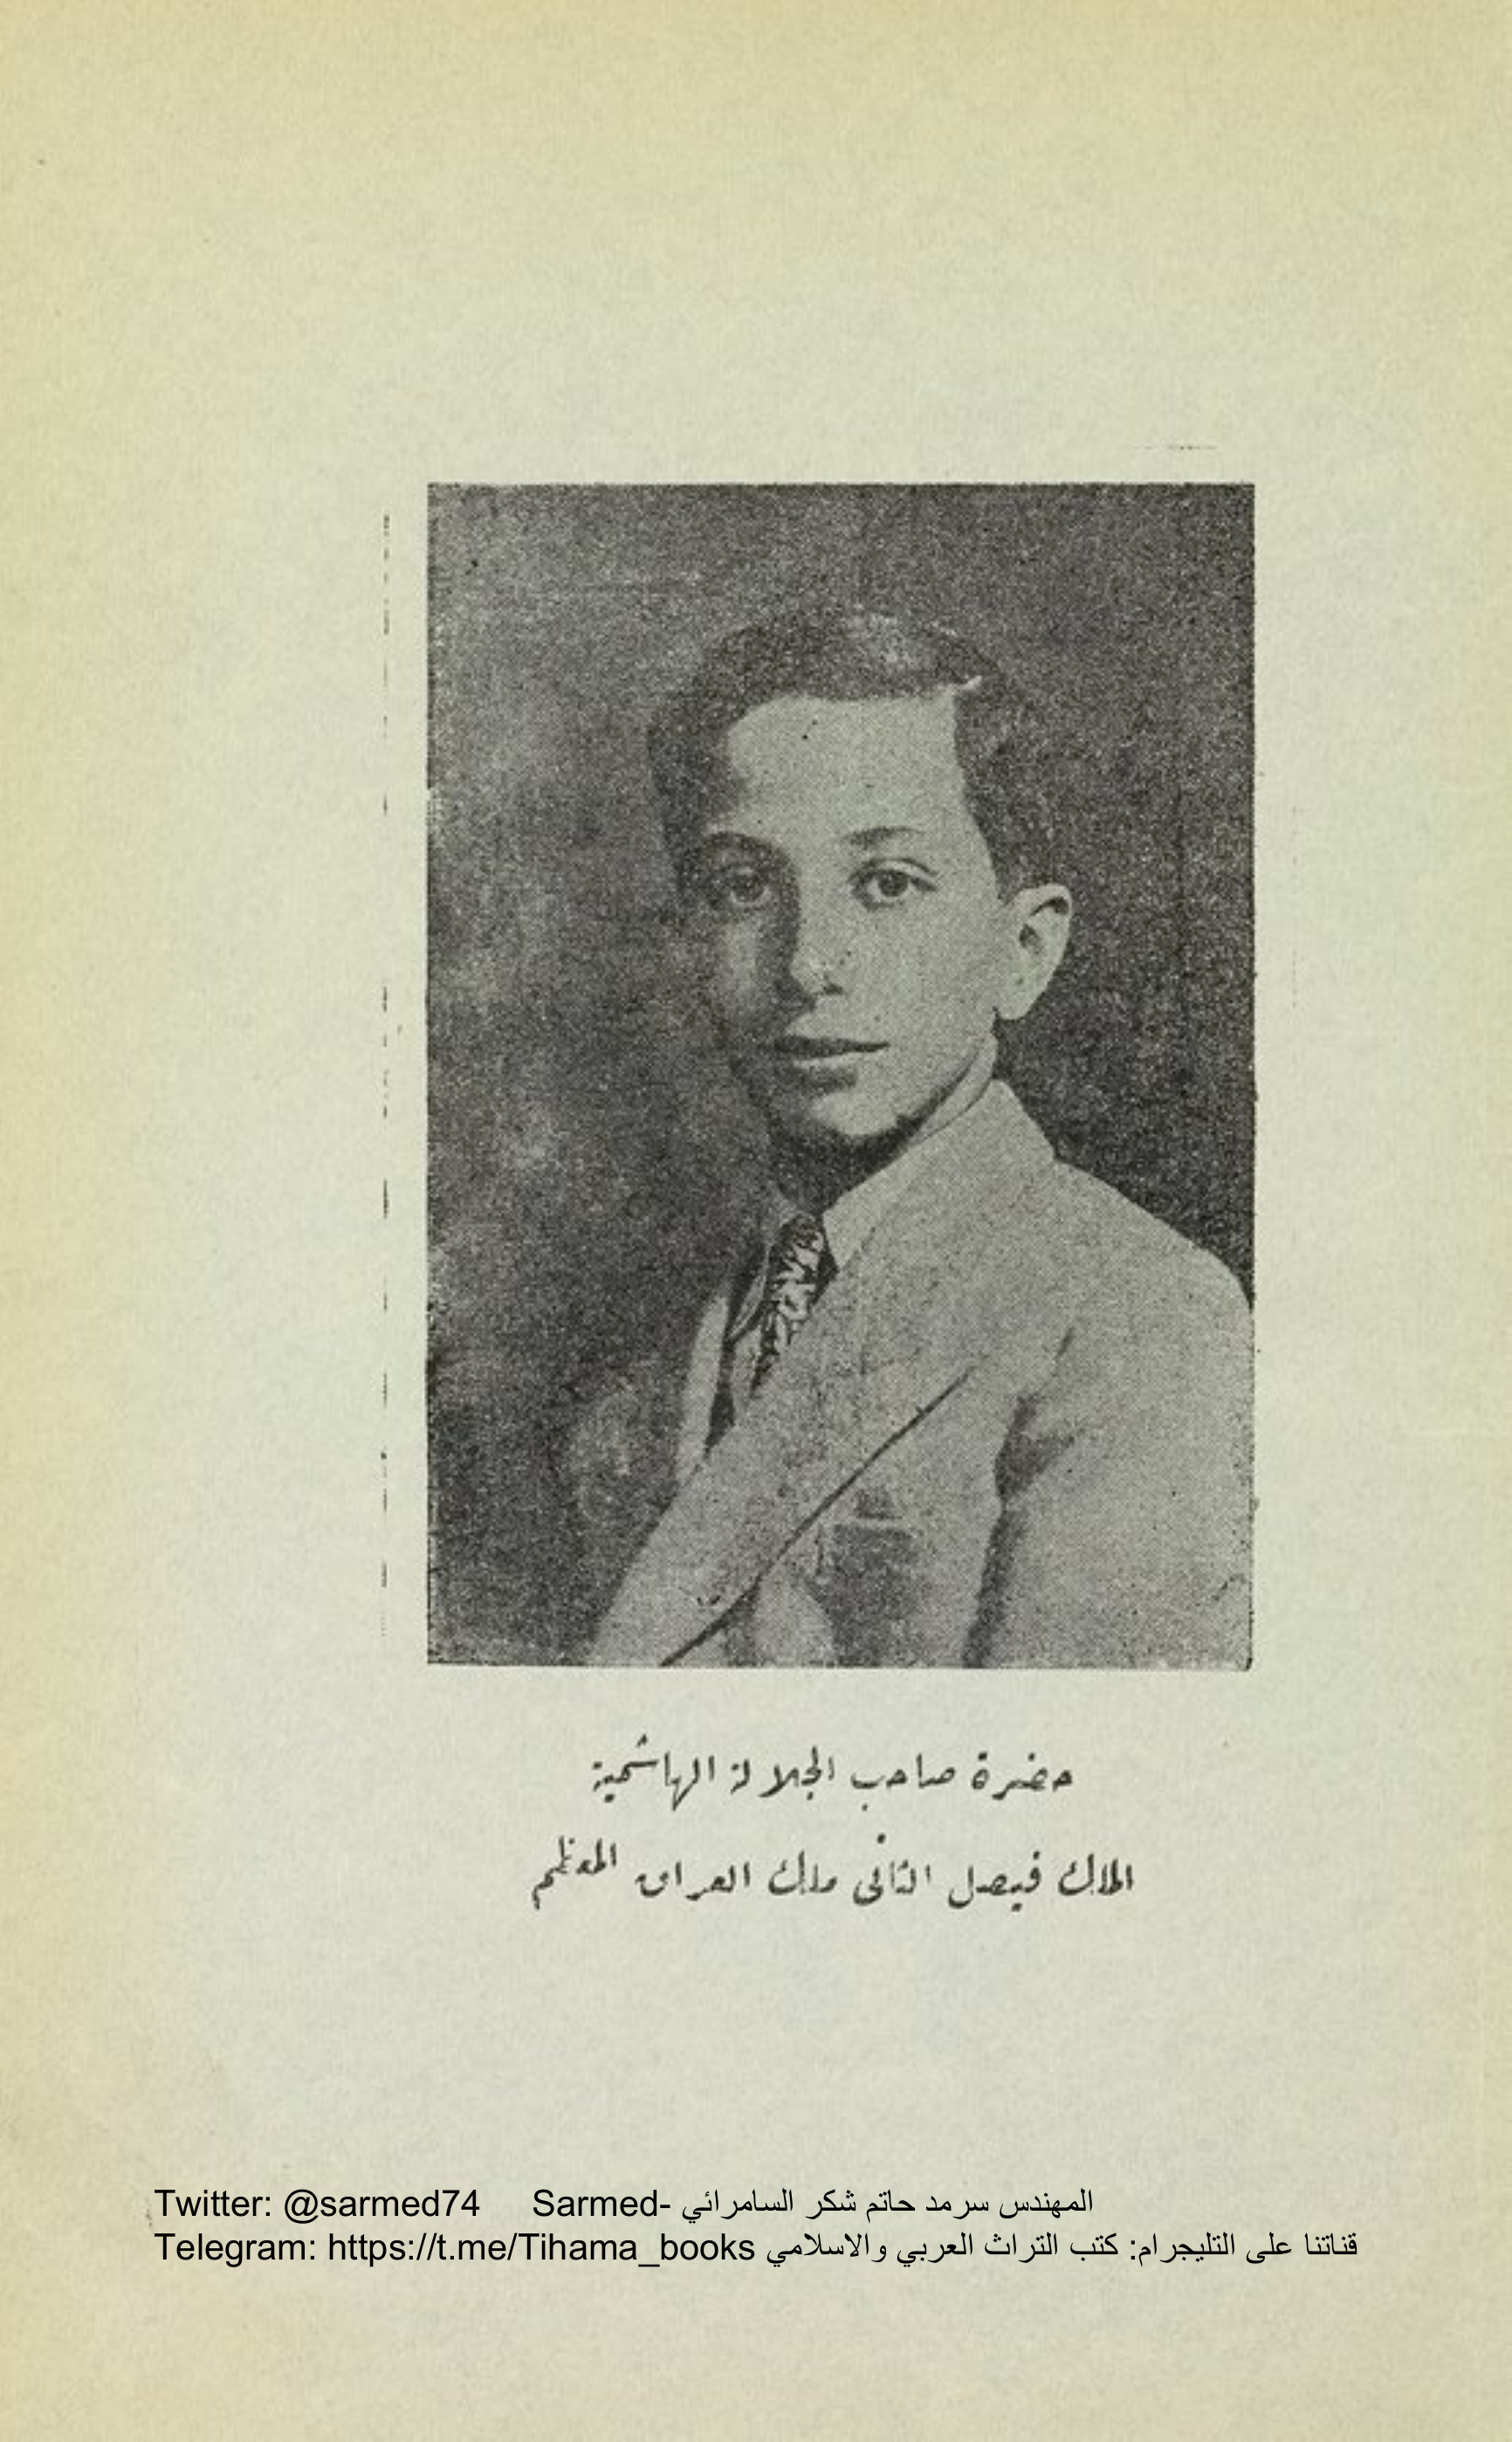 حضرة صاحب الجلالة الهاشمية
الملك فيصل الثانى ملك العراق المعظم
Twitter: @sarmed74 Sarmed- المهندس سرمد حاتم شكر السامرائي
Telegram: https://t.me/Tihama_books قناتنا على التليجرام: كتب التراث العربي والاسلامي